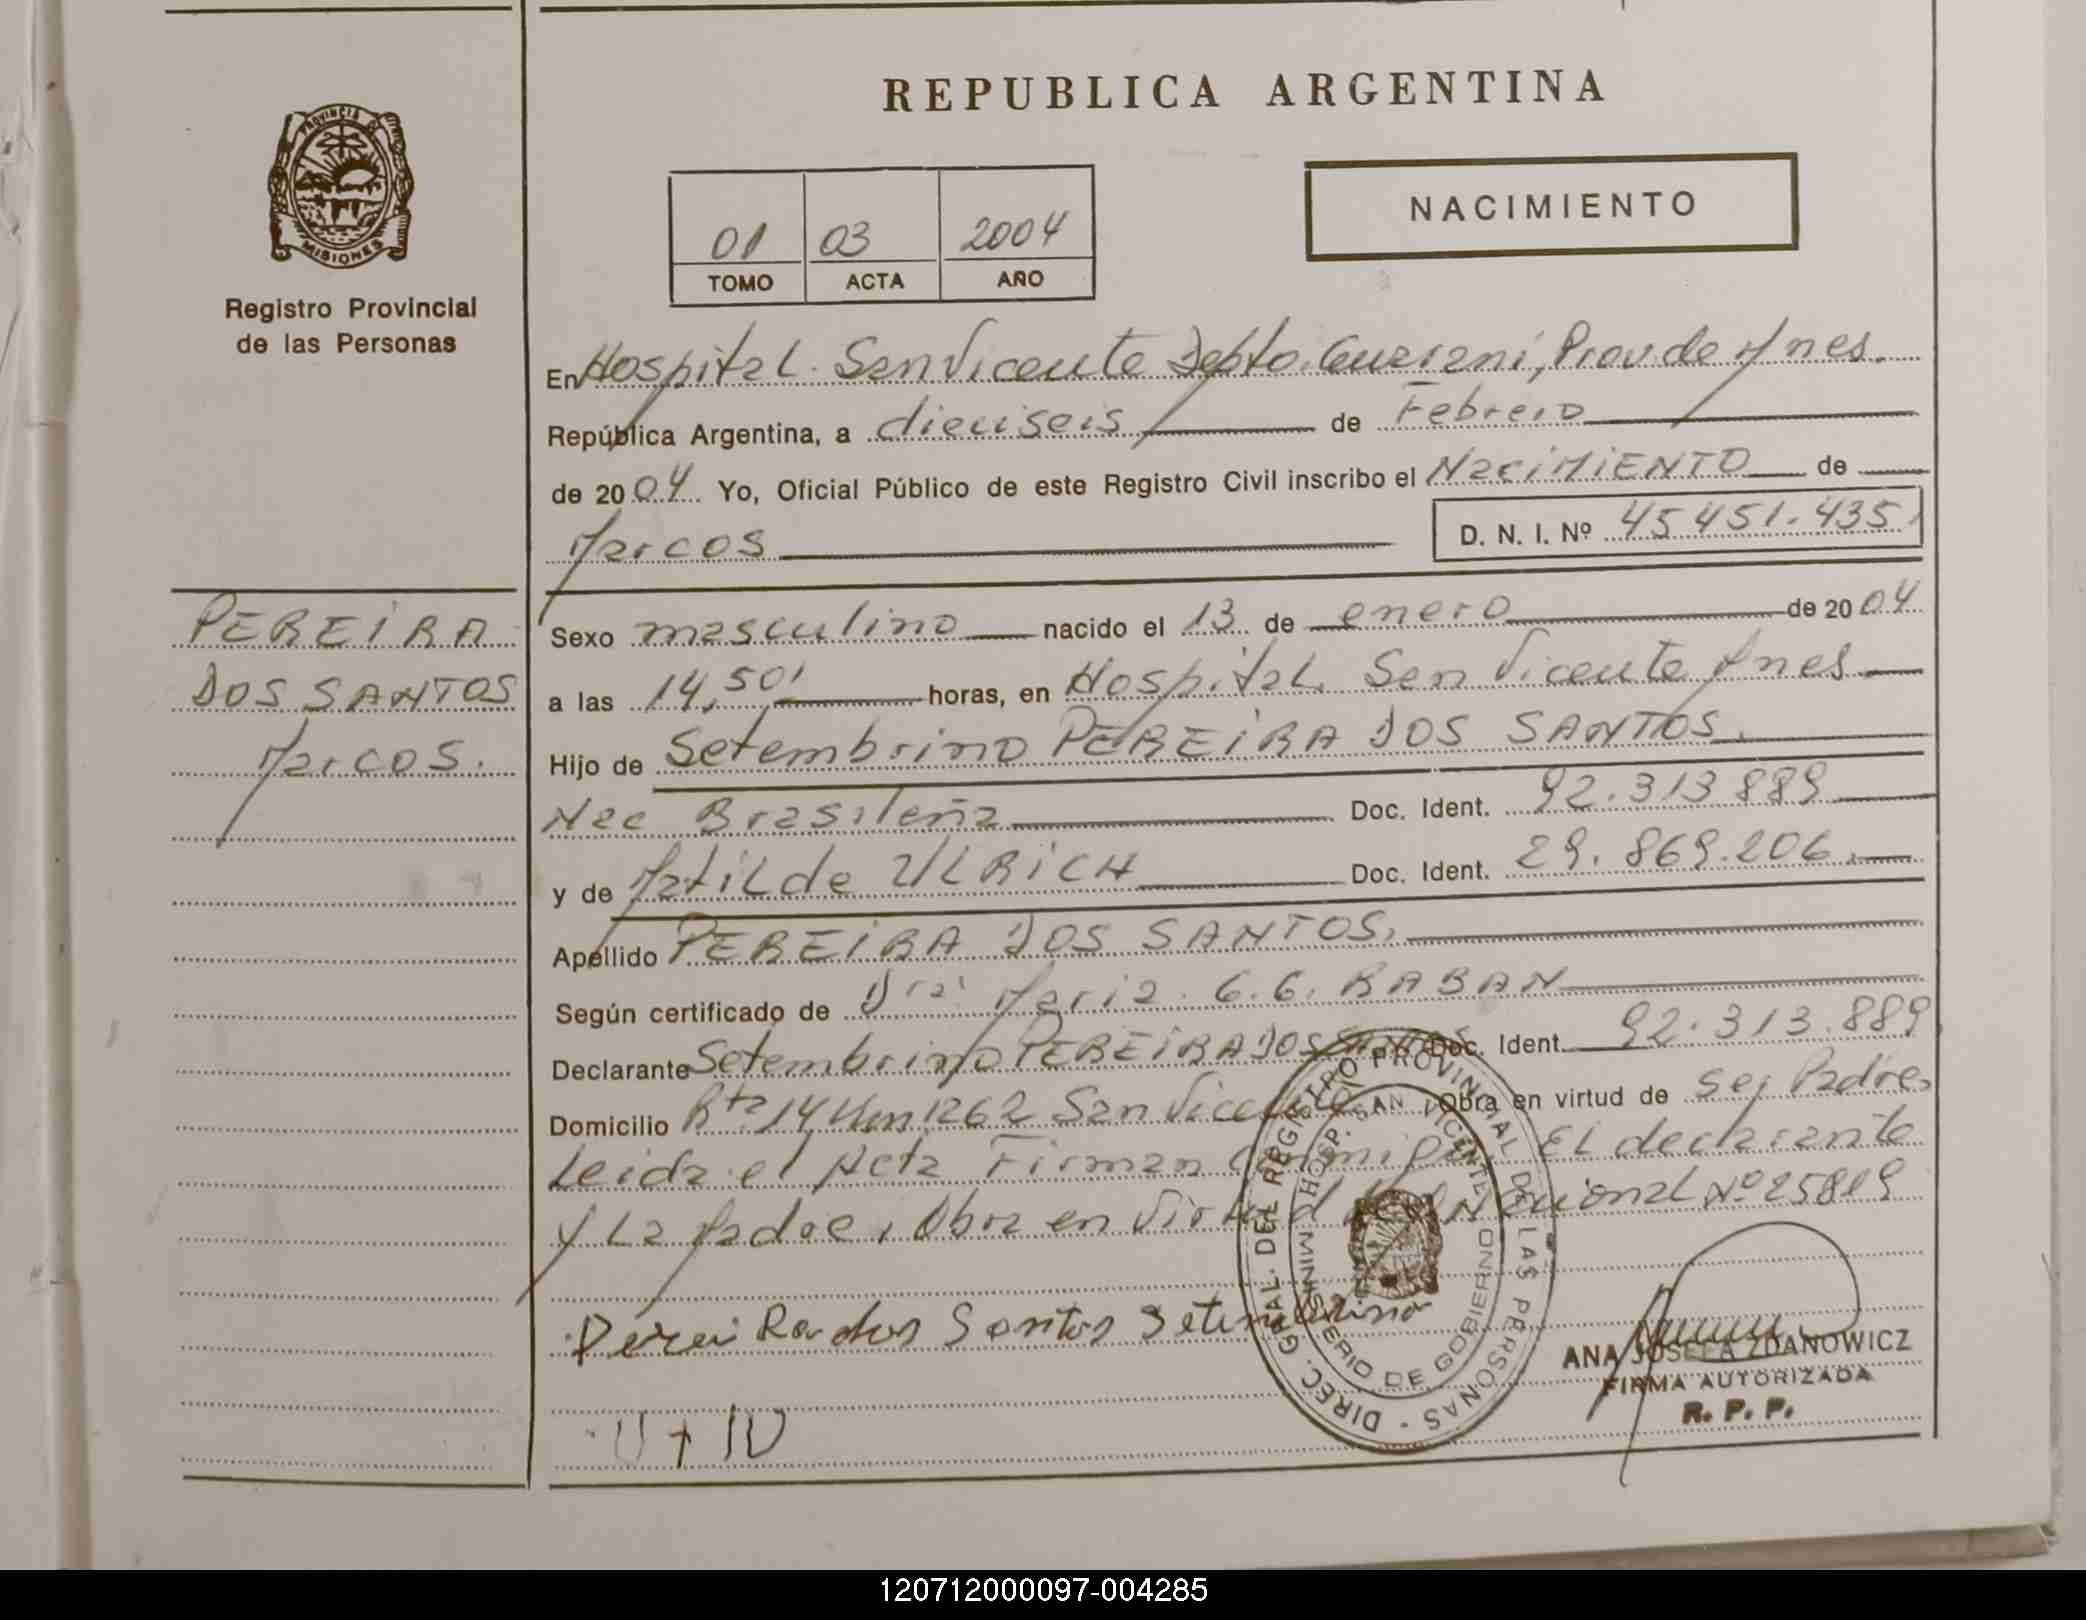 REPUBLICA ARGENTINA
PROVINCIA DE
MISIONES
Registro Provincial
de las Personas
01 03 2004
TOMO ACTA AÑO
NACIMIENTO
En Hospital San Vicente Depto. Guarani, Prov de Mnes.
República Argentina, a dieciseis de Febrero
de 2004 Yo, Oficial Público de este Registro Civil inscribo el NaciMiENTO de
Marcos D. N. I. Nº 45 451.435
PEREIRA
DOS SANTOS
Marcos.
Sexo masculino nacido el 13 de enero de 2004
a las 14,50' horas, en Hospital San Vicente Mnes
Hijo de Setembrino PEREIRA DOS SANTOS.
Nac Brasileña Doc. Ident. 92.313 889
y de Matilde ULRICH Doc. Ident. 29.869.206.
Apellido PEREIRA DOS SANTOS.
Según certificado de Dra. Maria G.G. RABAN
Declarante Setembrino PEREIRA DOS SANTOS Doc. Ident. 92.313.889
Domicilio Rta 14 Km 1262 San Vicente Obra en virtud de ser Padre
Leida el Acta Firman conmigo El declarante
y La Madre, Obra en Virtud Nacional Nº 25819
Perei Ra dos Santos Setembrino
DIREC. GRAL. DEL REGISTRO PROVINCIAL DE LAS PERSONAS -
HOSP. SAN VICENTE
MINISTERIO DE GOBIERNO
ANA JOSEFA ZDANOWICZ
FIRMA AUTORIZADA
R. P. P.
120712000097-004285